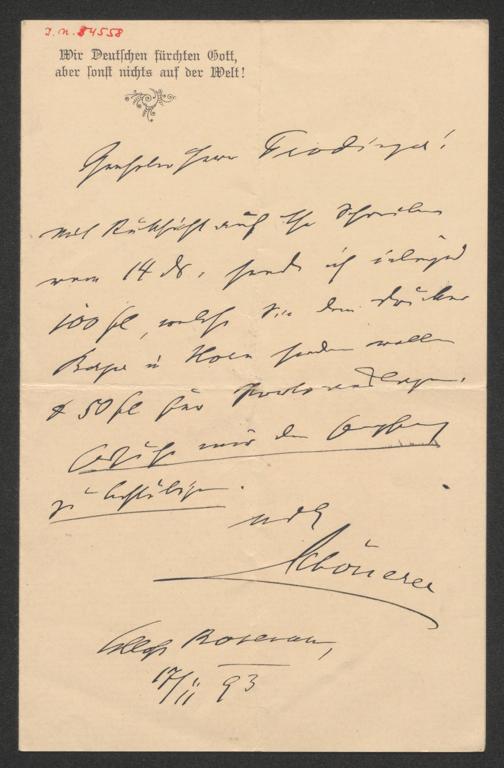 J. N. 84558
Wir Deutschen fürchten Gott,
aber sonst nichts auf der Welt!
Geehrter Herr
Mit Rücksicht auf Ihr Schreiben
vom 14 ds. sende ich
100 fl, welche Sie dem Drucker
in Horn senden wollen
& 50 fl für
Ersuche mir den Empfang
zu bestätigen.
mdG
Schönerer
Schloss Rosenau,
17/II 93